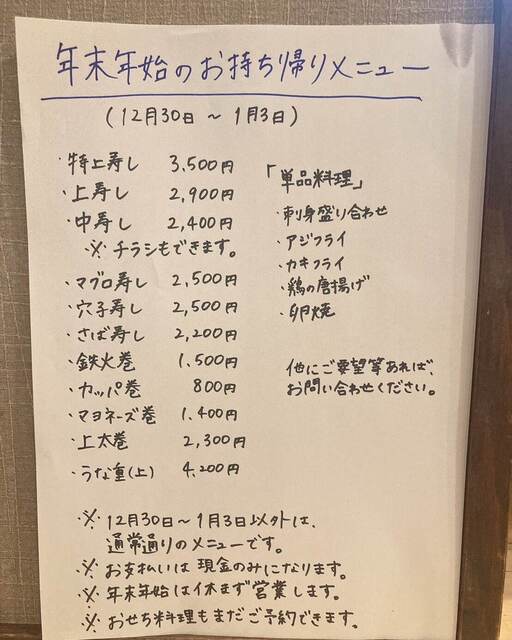 年末年始のお持ち帰りメニュー
(12月30日 ~ 1月3日)
・特上寿し 3,500円
・上寿し 2,900円
・中寿し 2,400円
※ チラシもできます。
・マグロ寿し 2,500円
・穴子寿し 2,500円
・さば寿し 2,200円
・鉄火巻 1,500円
・カッパ巻 800円
・マヨネーズ巻 1,400円
・上太巻 2,300円
・うな重(上) 4,200円
「単品料理」
・刺身盛り合わせ
・アジフライ
・カキフライ
・鶏の唐揚げ
・卵焼
他にご要望等あれば、
お問い合わせください。
※ 12月30日~1月3日以外は、
通常通りのメニューです。
※ お支払いは現金のみになります。
※ 年末年始は休まず営業します。
※ おせち料理もまだご予約できます。